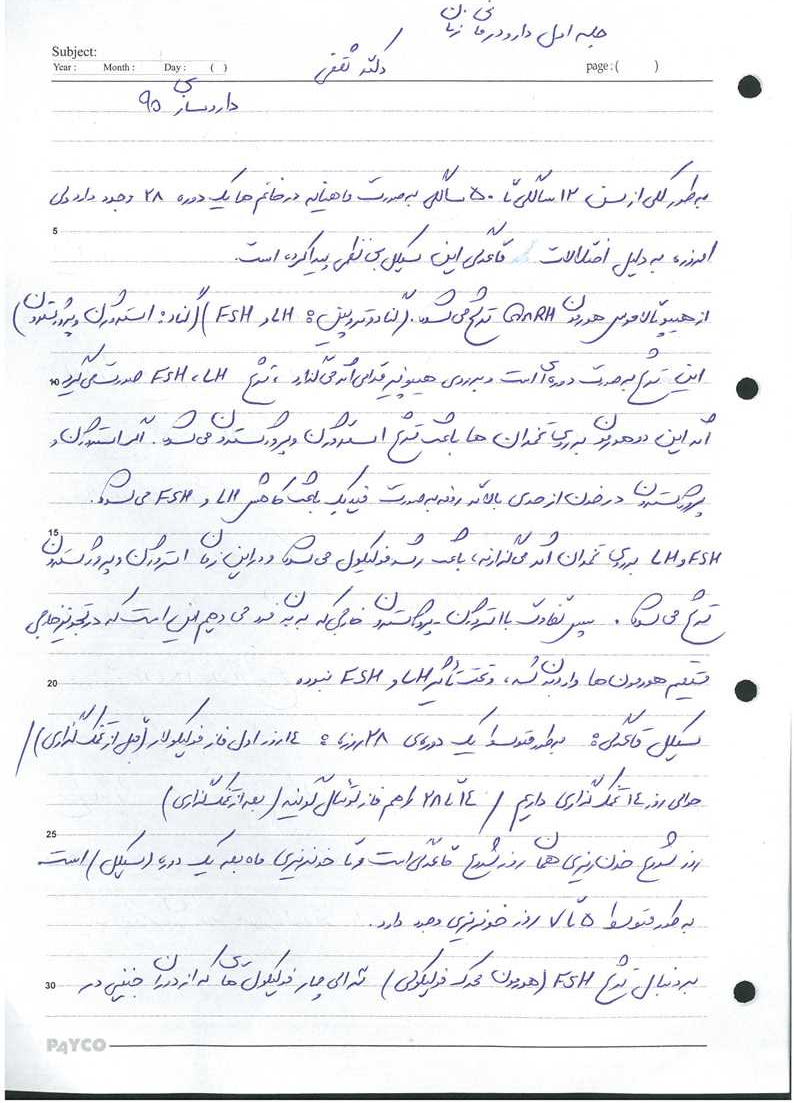 جلسه اول دارودرمانی زنان
Subject:
Year : Month : Day : ( )
دکتر ثقفی
page : ( )
داروسازی 95
به طور کلی از سن 12 سالگی تا 50 سالگی به صورت ماهیانه در خانم ها یک دوره 28 وجود دارد ولی
5
امروزه به دلیل اختلالات قاعدگی این سیکل بی نظمی پیدا کرده است.
از هیپوتالاموس هورمون GnRH ترشح می شود. (گنادوتروپین: LH و FSH) (گناد: استروژن و پروژسترون)
10
این ترشح به صورت دوره ای است و بر روی هیپوفیز قدامی اثر می گذارد، ترشح FSH، LH صورت می گیرد
اثر این دو هورمون بر روی تخمدان ها باعث ترشح استروژن و پروژسترون می شود. اگر استروژن و
پروژسترون در خون از حدی بالاتر رود به صورت فیدبک باعث کاهش LH و FSH می شود.
15
FSH و LH بر روی تخمدان اثر می گذارند، باعث رشد فولیکول می شود و در این زمان استروژن و پروژسترون
ترشح می شود. پس تفاوت با استروژن - پروژسترون خارجی که به فرد می دهیم این است که در تجویز خارجی
20
مستقیم هورمون ها وارد بدن شده، و تحت تأثیر LH و FSH نبوده
سیکل قاعدگی: به طور متوسط یک دوره ی 28 روزه: 14 روز اول فاز فولیکولار (قبل از تخمک گذاری) /
حوالی روز 14 تخمک گذاری داریم / 14 تا 28 را هم فاز لوتئال گویند (بعد از تخمک گذاری)
25
روز شروع خون ریزی همان روز شروع قاعدگی است و تا خونریزی ماه بعد یک دوره (سیکل) است
به طور متوسط 5 تا 7 روز خونریزی وجود دارد.
30
به دنبال ترشح FSH (هورمون محرک فولیکولی) تعدادی از فولیکول هایی که از دوران جنینی در
PAYCO